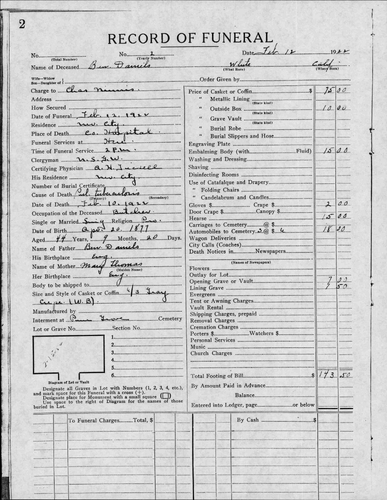 2
RECORD OF FUNERAL
No.
(Total Number)
No. 2
(Yearly Number)
Date Feb 12 1922
Name of Deceased Ben Daniels White
(What Race)
(Where Born)
Charge to Chas
Address
How Secured
Date of Funeral Feb. 12, 1922
Residence City
Place of Death Co. Hospital
Funeral Services at Here
Time of Funeral Service 2 P.M.
Clergyman
Certifying Physician
His Residence City
Number of Burial Certificate
Cause of Death
(Primary) (Secondary)
Date of Death Feb. 10, 1922
Occupation of the Deceased Butcher
Single or Married Sing Religion
Date of Birth Apr. 20. 1877
Aged 44 Years 9 Months 20 Days
Name of Father Ben Daniels
His Birthplace Eng
Name of Mother Mary Thomas
(Maiden Name)
Her Birthplace Eng.
Body to be shipped to
Size and Style of Casket or Coffin 6/3 Gray
Crepe (W.B)
Manufactured by
Interment at Pine Grove Cemetery
Lot or Grave No. Section No.
1. 2. 3. 4. 5. 6.
Diagram of Lot or Vault
Designate all Graves in Lot with Numbers (1, 2, 3, 4, etc.)
and mark spot for this Funeral with a cross (+).
Designate place for Monument with a small square
Use space to the right of Diagram for the names of those
buried in Lot.
Order Given by
Price of Casket or Coffin 75 00
" Metallic Lining
(State Kind)
" Outside Box 10 00
(State Kind)
" Grave Vault
(State Kind)
" Burial Robe
" Burial Slippers and Hose
Engraving Plate
Embalming Body (with Fluid) 15 00
Washing and Dressing
Shaving
Disinfecting Rooms
Use of Catafalque and Drapery
" Folding Chairs
" Candelabrum and Candles
Gloves Crape 2 00
Door Crape Gloves
Hearse 15 00
Carriages to Cemetery @
Automobiles to Cemetery
Wagon Deliveries
City Calls (Coaches)
Death Notices in Newspapers
(Names of Newspapers)
Flowers
Outlay for Lot
Opening Grave or Vault
Lining Grave
Evergreen
Tent or Awning Charges
Vault Rental
Shipping Charges, prepaid
Removal Charges
Cremation Charges
Porters Watchers $
Personal Services
Music
Church Charges
Total Footing of Bill 143 50
By Amount Paid in Advance
Balance
Entered into Ledger, page or below
To Funeral Charges, Total
By Cash $